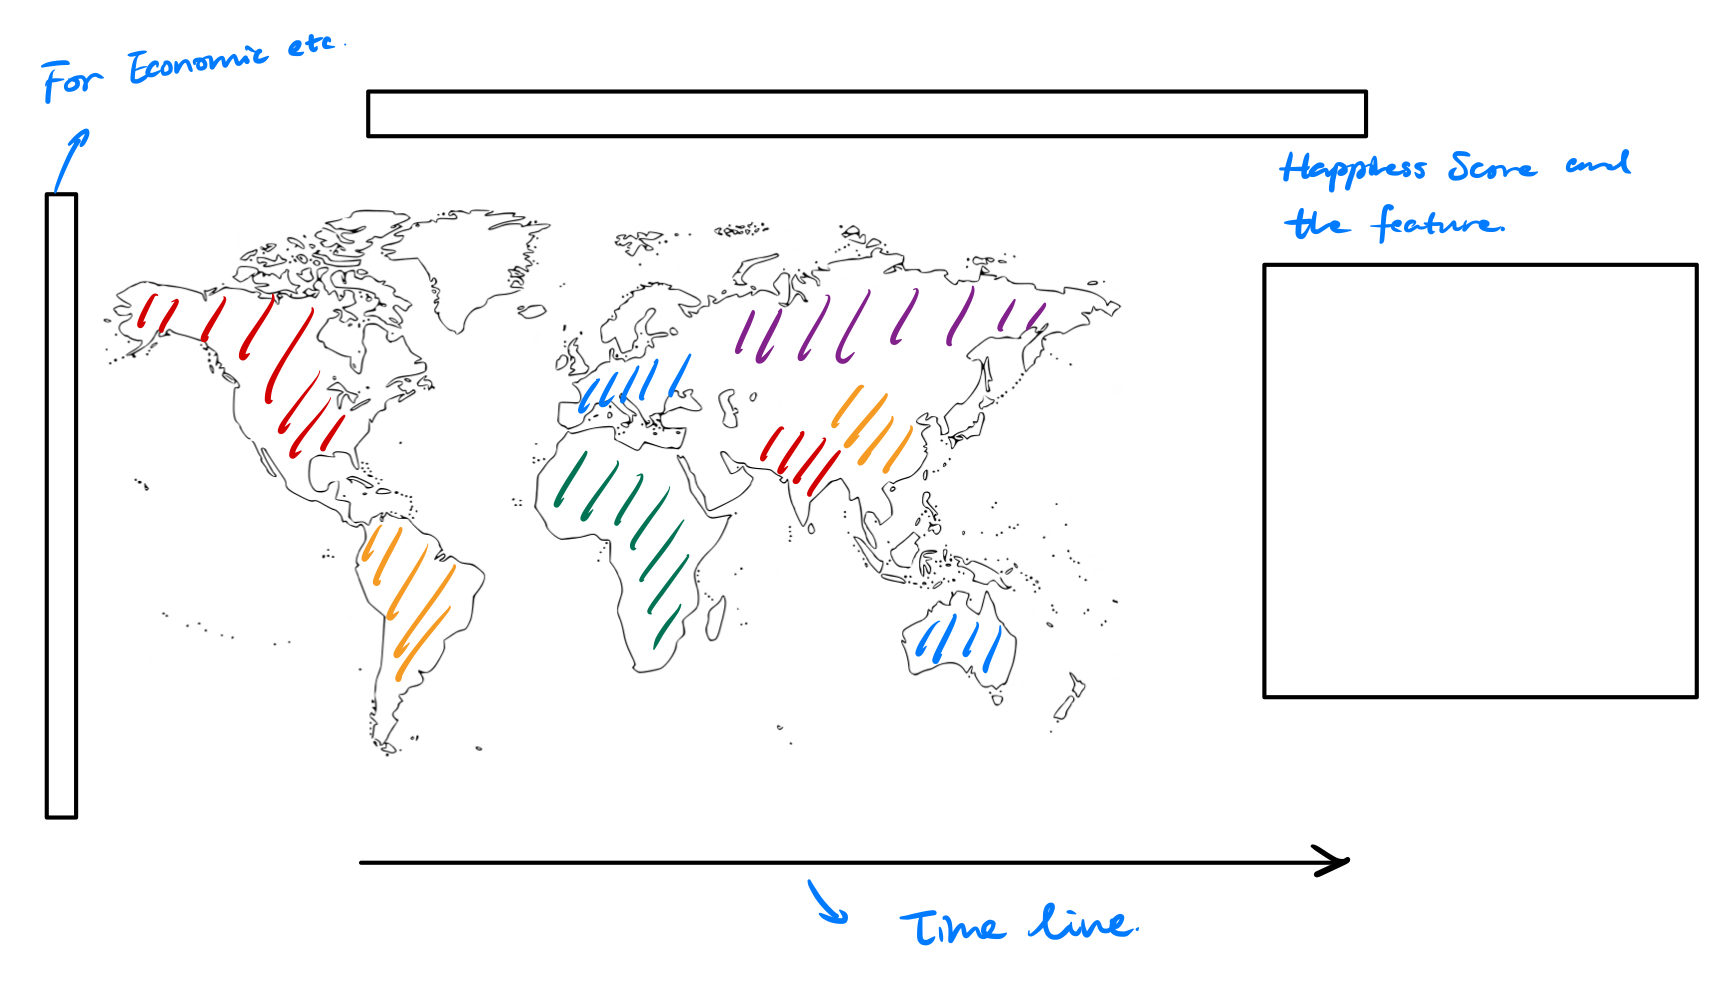 For Economic etc.
Happiness Score and
the feature.
Time line.